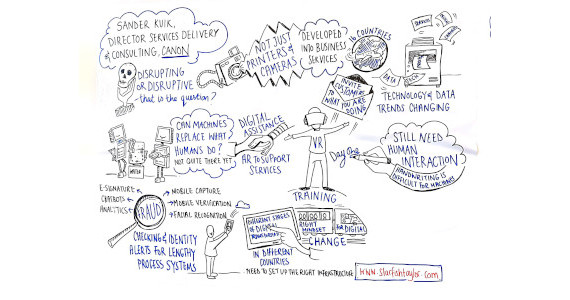 SANDER KUIK,
DIRECTOR SERVICES DELIVERY
& CONSULTING, CANON
DISRUPTING
OR DISRUPTIVE
- that is the question?
NOT JUST
PRINTERS &
CAMERAS
DEVELOPED
INTO BUSINESS
SERVICES
16 COUNTRIES
INVITE
CUSTOMERS
TO WHAT
YOU ARE
DOING
DATA
TECHNOLOGY & DATA
TRENDS CHANGING
CAN MACHINES
REPLACE WHAT
HUMANS DO?
NOT QUITE THERE YET
DIGITAL
ASSISTANCE
AR TO SUPPORT
SERVICES
VR
TRAINING
Day One
STILL NEED
HUMAN
INTERACTION
HANDWRITING IS
DIFFICULT FOR MACHINES
E-SIGNATURE
CHATBOTS
ANALYTICS
FRAUD
MOBILE CAPTURE
MOBILE VERIFICATION
FACIAL RECOGNITION
CHECKING & IDENTITY
ALERTS FOR LENGTHY
PROCESS SYSTEMS
DIFFERENT STAGES
OF DIGITAL
IN DIFFERENT
COUNTRIES
RIGHT
MINDSET
FOR DIGITAL
CHANGE
NEED TO SET UP THE RIGHT INFRASTRUCTURE
www.starfishtaylor.com